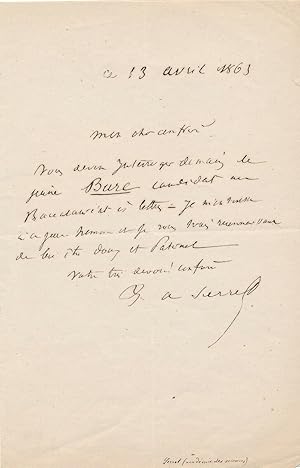 ce 13 avril 1863
mon cher confrère
Vous devez interroger demain le
jeune Bare candidat au
Baccalauréat ès lettres = Je m'intéresse
à ce jeune homme et je vous serai reconnaissant
de lui être doux et Paternel
votre très dévoué confrère
J. A. Serret